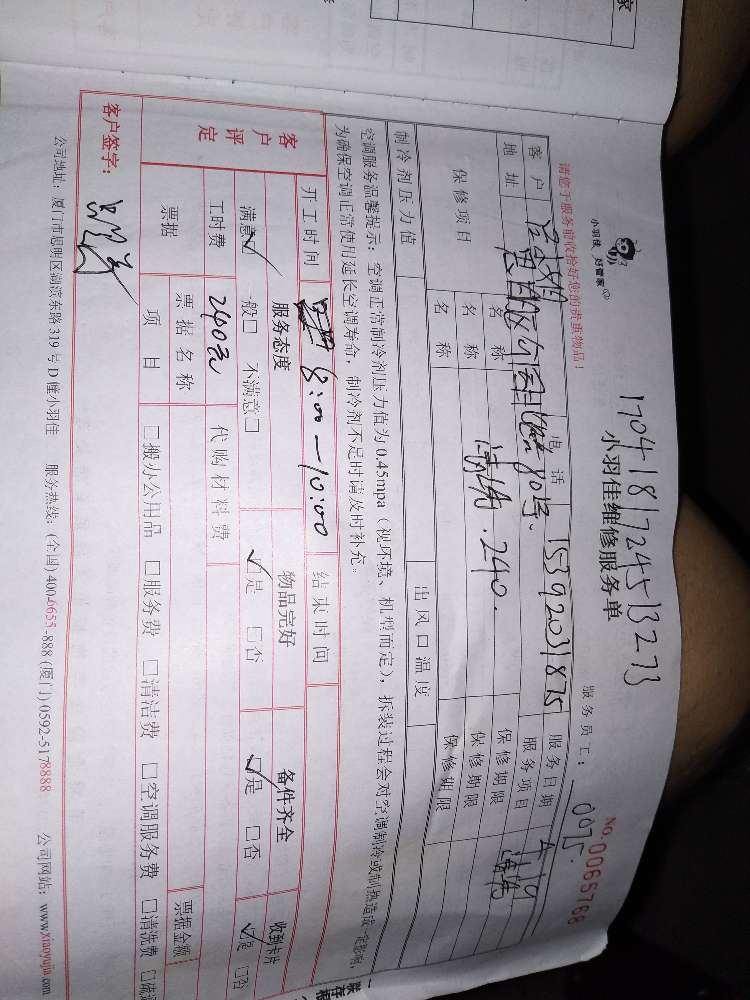 家
小羽佳 好管家
1704181724513273
小羽佳维修服务单
NO.0065768
请您于服务前收拾好您的贵重物品！
服务员工： 0975
客户 电话 15392031875 服务日期 4.19
地址 80号. 服务项目 清洗
保修项目 名称 清洗.240. 保修期限
名称 保修期限
名称 保修期限
制冷剂压力值 出风口温度
空调服务温馨提示：空调正常制冷剂压力值为0.45mpa（视环境、机型而定），拆装过程会对空调制冷或制热造成一定影响，
为确保空调正常使用延长空调寿命，制冷剂不足时请及时补充。
开工时间 8:00—10:00 结束时间
客户评定 服务态度 物品完好 备件齐全 收到卡片
满意☑ 一般□ 不满意□ ☑是 □否 ☑是 □否 ☑是 □否
工时费 240元 代购材料费
票据 票据名称 票据金额
项目 □搬办公用品 □服务费 □清洁费 □空调服务费 □清洗费
客户签字：
公司地址：厦门市思明区湖滨东路319号D幢小羽佳 服务热线：(全国)400-6655-888 (厦门)0592-5178888 公司网站：www.xiaoyujia.com